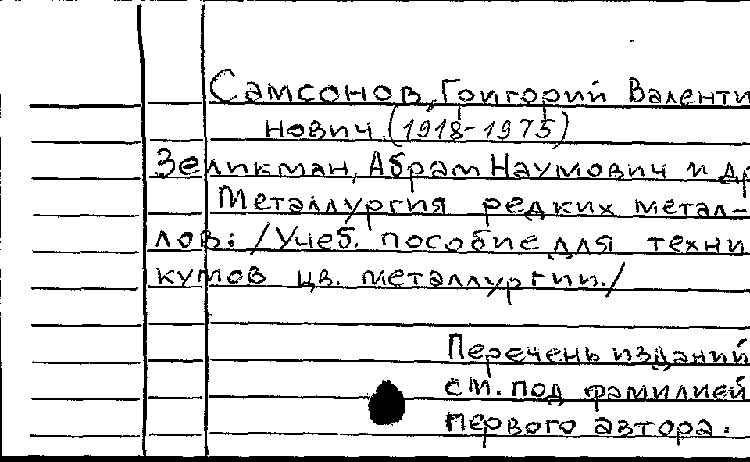 Самсонов, Григорий Валенти
нович (1918-1975)
Зеликман, Абрам Наумович и др
Металлургия редких метал-
лов: /Учеб. пособие для техни
кумов цв. металлургии./
Перечень изданий
см. под фамилией
первого автора.